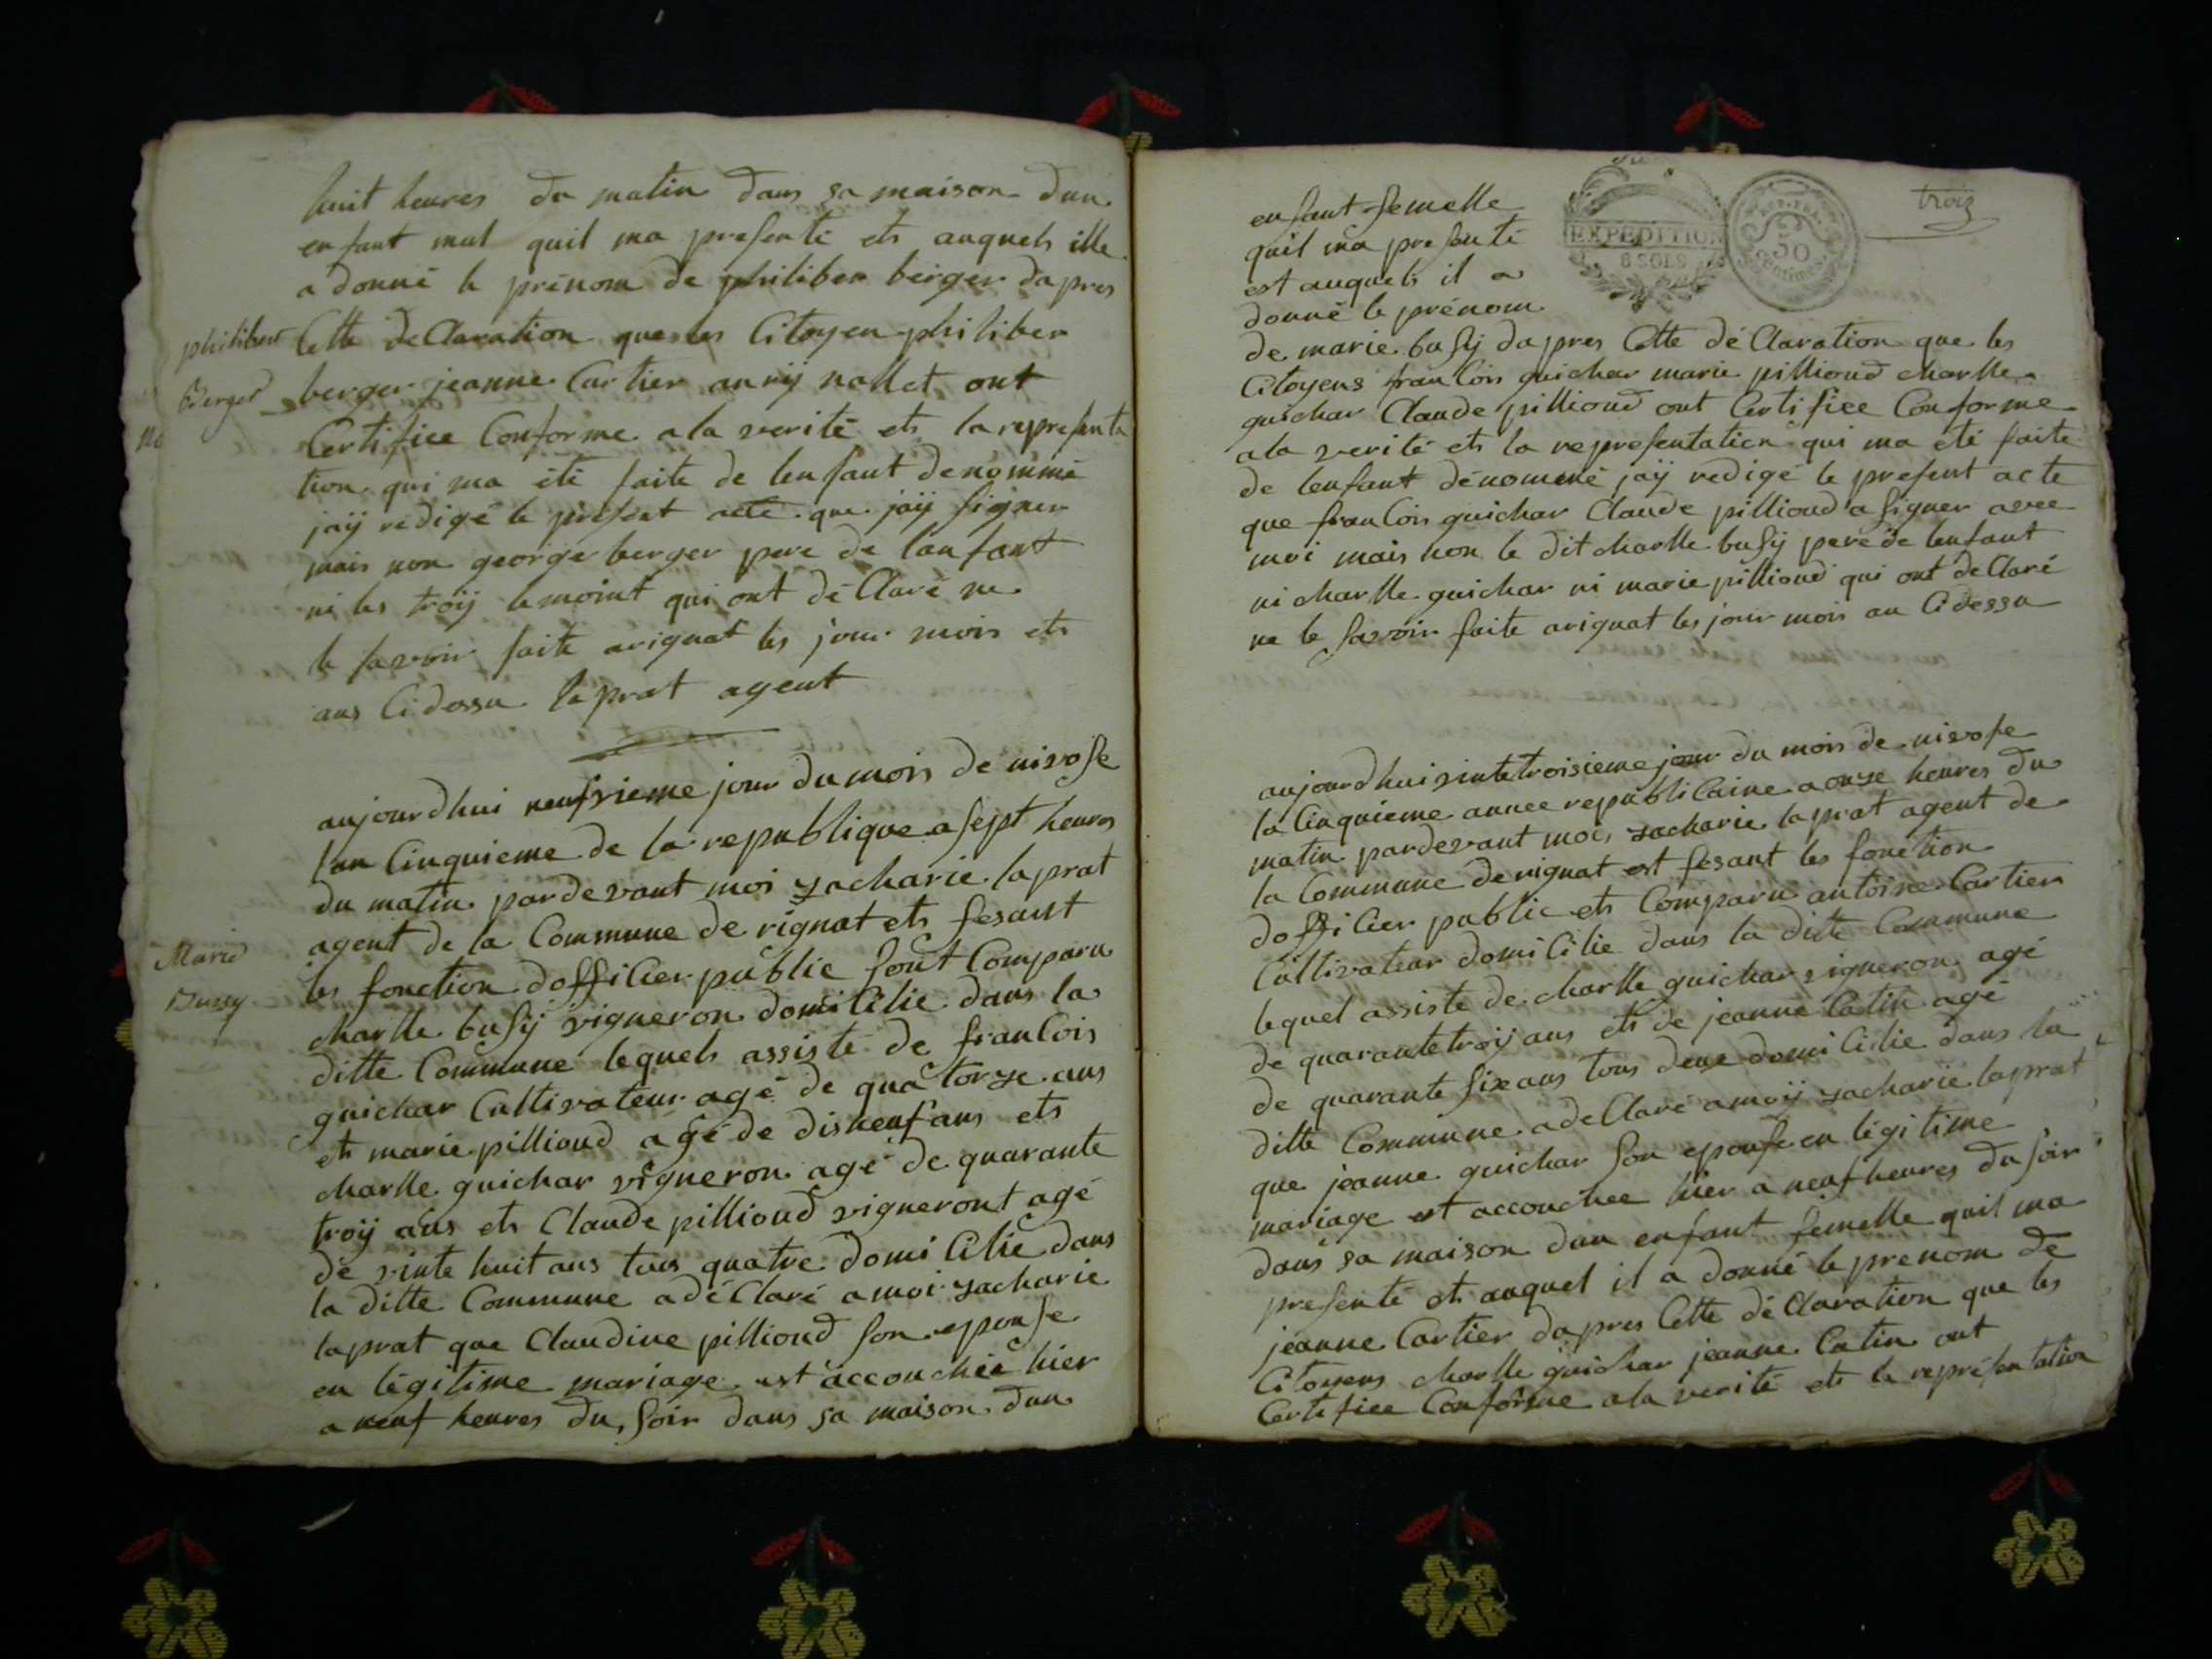 huit heures du matin dans sa maison dun
enfant mal quil ma presenté ets auquels ille
a donné le prénom de philiber berger dapres
philibert
Cette deClaration que les Citoyen philiber
Berger
berger jeanne Cartier anrij nallet ont
Certifiee Conforme a la verité ets la representa
tion qui ma été faite de lenfant denommé
jaÿ redigé le present acte que jaÿ signer
mais non george berger pere de lanfant
ni les troÿ temoint qui ont déClaré ne
le savoir faite arignat les jour mois ets
ans Cidessu laprat agent
aujourdhui neufvieme jour du mois de nivose
lan Cinquieme de la republique a sept heures
du matin pardevant moi zacharie laprat
agent de la Commune de rignat ets fesant
Marie
les fonction dofficier public sont Comparu
Bussy
charlle busÿ vigneron domiCilie dans la
ditte Commune lequels assisté de franCois
guichar Cultivateur agé de quatorze ans
ets marie pillioud agé de disneuf ans ets
charlle guichar vigneron agé de quarante
troÿ ans ets Claude pillioud vigneront agé
de vinte huit ans tous quatre domiCilie dans
la ditte Commune a déClaré a moi zacharie
laprat que Claudine pillioud son epouse
en légitime mariage est accouchée hier
a neuf heures du soir dans sa maison dun
trois
EXPEDITION
8 SOLS
50
centimes
enfant femelle
quil ma presenté
est auquels il a
donné le prénom
de marie busÿ dapres Cette déClaration que les
Citoyens franCois guichar marie pillioud charlle
guichar Claude pillioud ont Certifiee Conforme
a la verité ets la representation qui ma été faite
de lenfant dénommé jaÿ redigé le present acte
que franCois guichar Claude pillioud a signer avec
moi mais non le dit charlle busÿ pere de lenfant
ni charlle guichar ni marie pillioud qui ont deClaré
ne le savoir faite arignat les jour mois an Cidessu
aujourdhui vintetroisieme jour du mois de nivose
la Cinquieme annee republiCaine a onze heures du
matin pardevant moi zacharie laprat agent de
la Commune de rignat est fesant les fonction
dofficier public ets Comparu antoine Cartier
Cultivateur domiCilie dans la ditte Commune
lequel assisté de charlle guichar vigneron agé
de quarantetroÿ ans ets de jeanne Catin agé
de quarante six ans tous deux domiCilie dans la
ditte Commune a deClaré a moÿ zacharie laprat
que jeanne guichar son epouse en légitime
mariage est accouchee hier a neuf heures du soir
dans sa maison dun enfant femelle quil ma
presenté ets auquel il a donné le prenom de
jeanne Cartier dapres Cette déClaration que les
Citoyens charlle guichar jeanne Catin ont
Certifiee Conforme a la verité ets la représentation